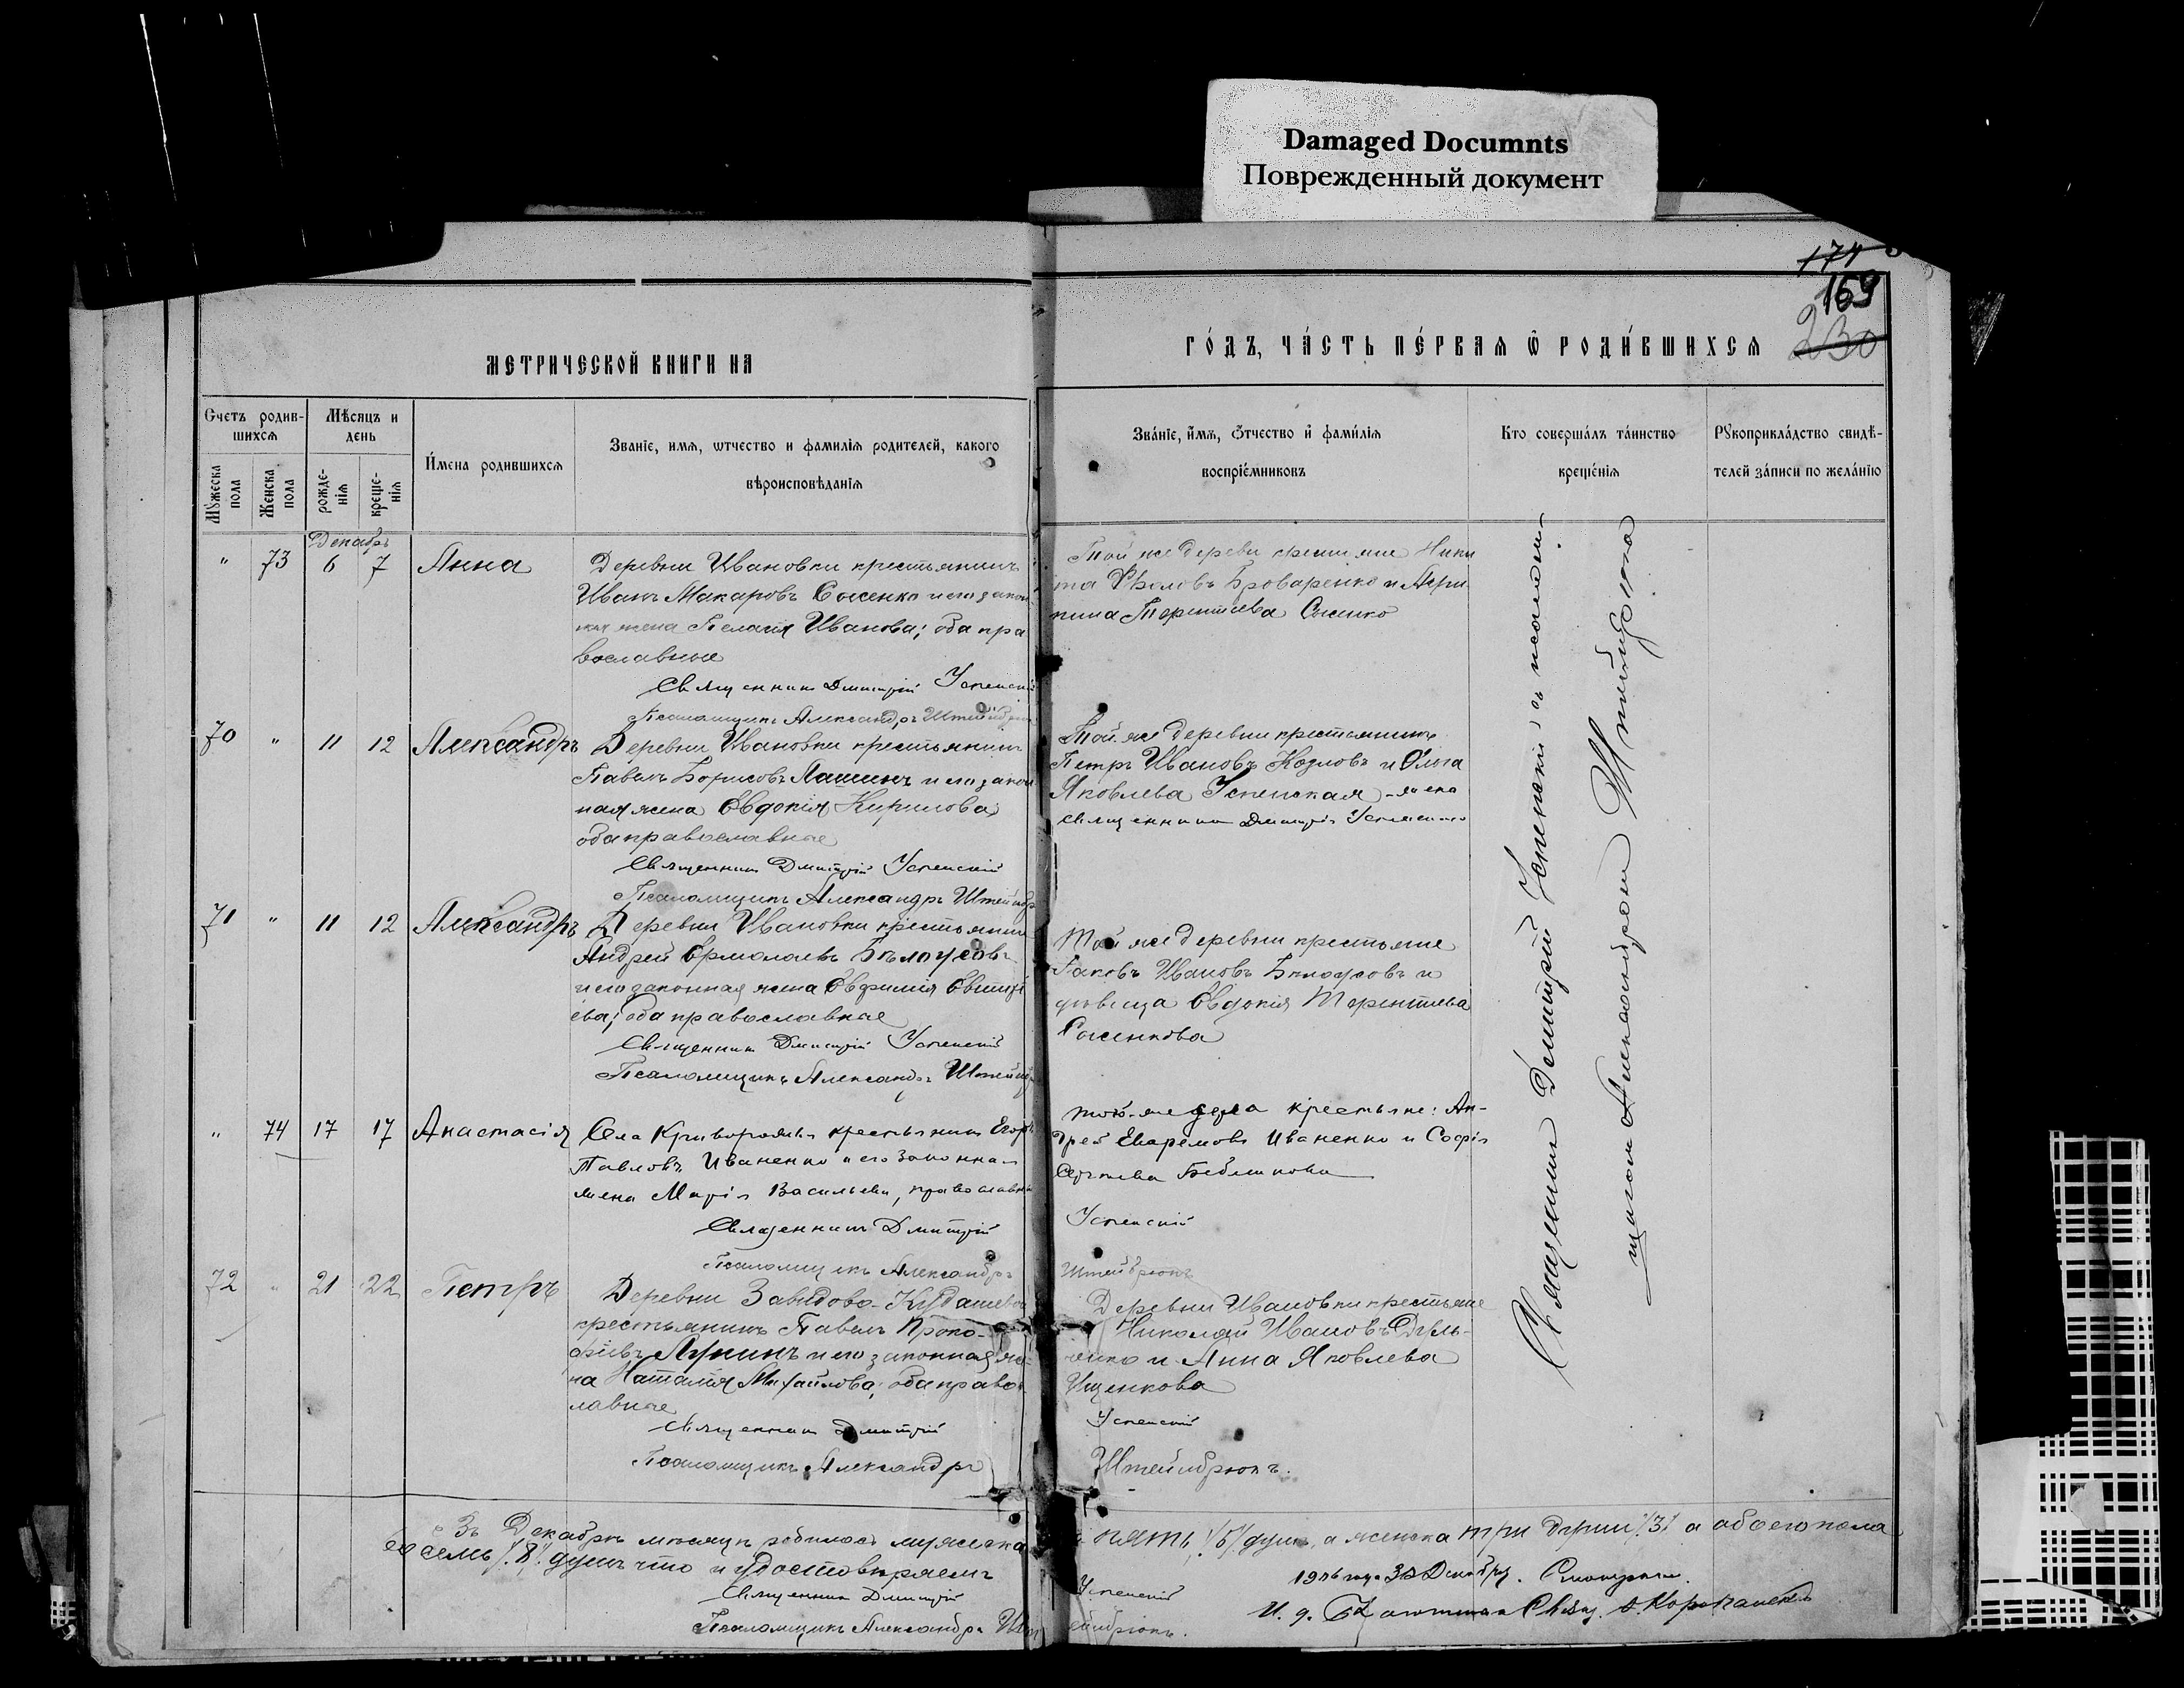 Damaged Documnts
Поврежденный документ
174
169
230
МЕТРИЧЕСКОЙ КНИГИ НА
ГО́ДЪ, ЧА́СТЬ ПЕ́РВАѦ Ѡ҆ РОДИ́ВШИХСѦ
Счетъ родив-
шихсѧ
Мѣсяцъ и
день
Мꙋжеска
пола
Женска
пола
рожде-
нїѧ
креще-
нїѧ
И́мена родившихсѧ
Званїе, имѧ, ѡтчество и фамилїѧ родителей, какого
вѣроисповѣданїѧ
Зва́нїе, и҆́мѧ, ѻ҆́тчество и҆ фами́лїѧ
воспрїе́мниковъ
Кто соверша́лъ та́инство
креще́нїѧ
Рꙋкоприкла́дство свидѣ́-
телей за́писи по жела́нїю
Декабрь
" 73 6 7 Анна
Деревни Ивановки крестьянинъ
Иванъ Макаровъ Сысенко и его закон
ная жена Пелагія Иванова; оба пра
вославные
Священникъ Дмитрій Успенскій
Псаломщикъ Александръ
Той же деревни Ники
та Фроловъ Броваренко и Агри
пина Терентьева Сысенко
70 " 11 12 Александръ
Деревни Ивановки крестьянинъ
Павелъ Борисовъ Лашинъ и его закон
ная жена Евдокія Кирилова;
оба православные
Священникъ Дмитрій Успенскій
Псаломщикъ Александръ
Той же деревни крестьянинъ
Петръ Ивановъ Козловъ и Ольга
Яковлева Успенская - жена
священника Дмитрія Успенскаго
71 " 11 12 Александръ
Деревни Ивановки крестьянинъ
Андрей Ермолаевъ Бѣлоусовъ
и его законная жена Евфимія
ева; оба православные
Священникъ Дмитрій Успенскій
Псаломщикъ Александръ
Той же деревни крестьяне
Іаковъ Ивановъ Бѣлоусовъ и
Евдокія Терентьева
Сысенкова
" 74 17 17 Анастасія
Села крестьянинъ Егоръ
Павловъ Иваненко и его законная
жена Марія Васильева, православные
Священникъ Дмитрій
Псаломщикъ Александръ
того-же села крестьяне: Ан-
дрей Иваненко и Софія
Сергѣева
Успенскій
Штейнбрюкъ
72 " 21 22 Петръ
Деревни Завидово-Кудашево
крестьянинъ Павелъ Проко-
фіевъ Лунинъ и его законная же-
на Наталія Михайлова; оба правос
лавные
Священникъ Дмитрій
Псаломщикъ Александръ
Деревни Ивановки крестьяне
Николай Ивановъ
и Анна Яковлева
Ищенкова
Успенскій
Штейнбрюкъ.
Священникъ Дмитрій Успенскій съ псалом-
щикомъ Александромъ Штейнбрюкъ
Въ Декабрѣ мѣсяцѣ родилось мужеска
пять /5/ душъ, а женска три души /3/ а обоего пола
восемь /8/ душъ что и удостовѣряемъ
Священникъ Дмитрій
Успенскій
Псаломщикъ Александръ Штейнбрюкъ.
1906 года 30 Декабря. Смотрѣлъ.
И. д. Свящ.